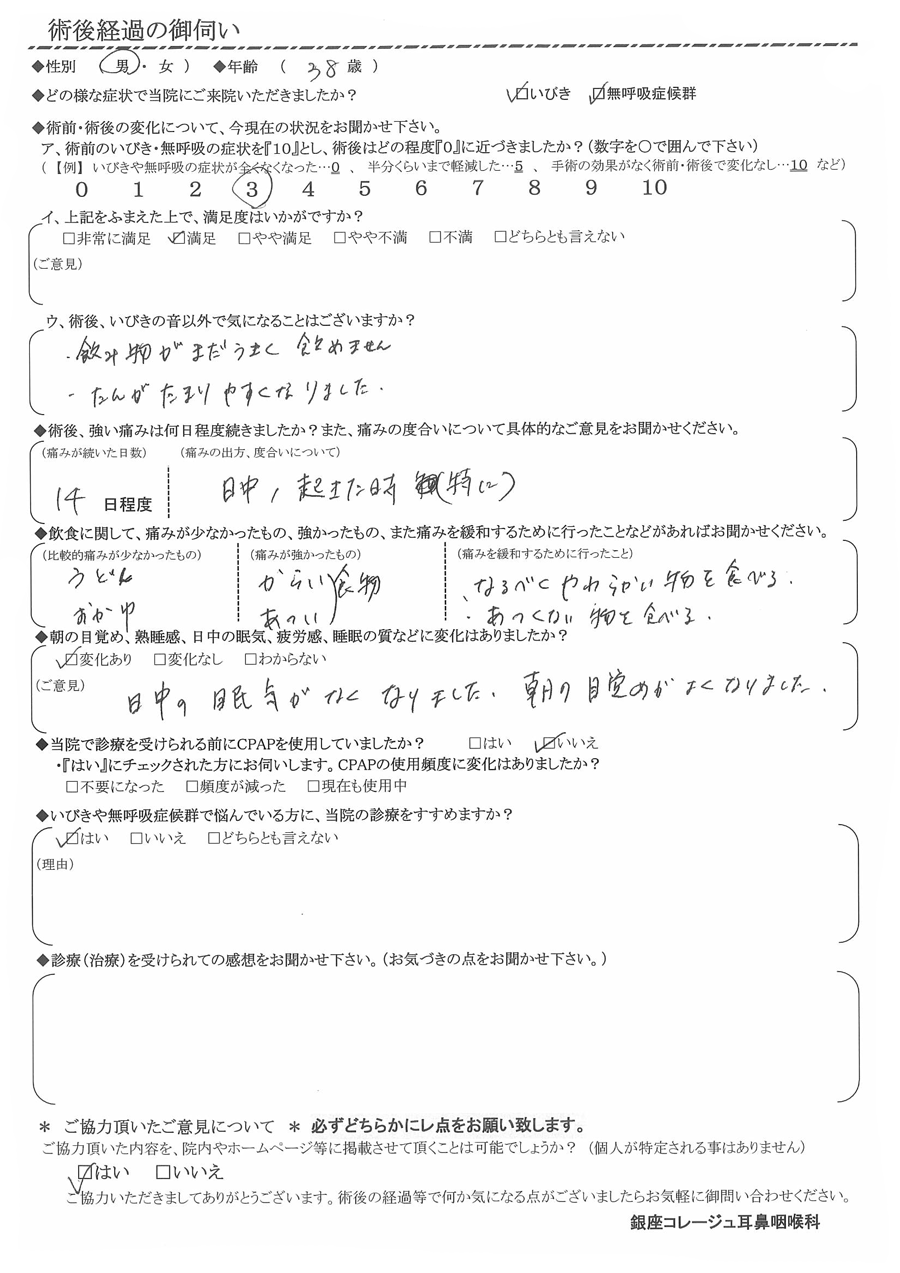 術後経過の御伺い
◆性別 (男・女) ◆年齢 (38歳)
◆どの様な症状で当院にご来院いただきましたか? ☑いびき ☑無呼吸症候群
◆術前・術後の変化について、今現在の状況をお聞かせ下さい。
ア、術前のいびき・無呼吸の症状を『10』とし、術後はどの程度『0』に近づきましたか?(数字を○で囲んで下さい)
(【例】いびきや無呼吸の症状が全くなくなった…0 、 半分くらいまで軽減した…5 、 手術の効果がなく術前・術後で変化なし…10 など)
0 1 2 3 4 5 6 7 8 9 10
イ、上記をふまえた上で、満足度はいかがですか?
□非常に満足 ☑満足 □やや満足 □やや不満 □不満 □どちらとも言えない
(ご意見)
ウ、術後、いびきの音以外で気になることはございますか?
・飲み物がまだうまく飲めません
・たんがたまりやすくなりました.
◆術後、強い痛みは何日程度続きましたか?また、痛みの度合いについて具体的なご意見をお聞かせください。
(痛みが続いた日数) (痛みの出方、度合いについて)
14 日程度 日中, 起きた時 (特に)
◆飲食に関して、痛みが少なかったもの、強かったもの、また痛みを緩和するために行ったことなどがあればお聞かせください。
(比較的痛みが少なかったもの) (痛みが強かったもの) (痛みを緩和するために行ったこと)
うどん からい 食物 ・なるべくやわらかい物を食べる.
おかゆ あつい ・あつくない物を食べる.
◆朝の目覚め、熟睡感、日中の眠気、疲労感、睡眠の質などに変化はありましたか?
☑変化あり □変化なし □わからない
(ご意見) 日中の眠気がなくなりました. 朝の目覚めがよくなりました.
◆当院で診療を受けられる前にCPAPを使用していましたか? □はい ☑いいえ
・『はい』にチェックされた方にお伺いします。CPAPの使用頻度に変化はありましたか?
□不要になった □頻度が減った □現在も使用中
◆いびきや無呼吸症候群で悩んでいる方に、当院の診療をすすめますか?
☑はい □いいえ □どちらとも言えない
(理由)
◆診療(治療)を受けられての感想をお聞かせ下さい。(お気づきの点をお聞かせ下さい。)
＊ ご協力頂いたご意見について ＊ 必ずどちらかにレ点をお願い致します。
ご協力頂いた内容を、院内やホームページ等に掲載させて頂くことは可能でしょうか? (個人が特定される事はありません)
☑はい □いいえ
ご協力いただきましてありがとうございます。術後の経過等で何か気になる点がございましたらお気軽に御問い合わせください。
銀座コレージュ耳鼻咽喉科